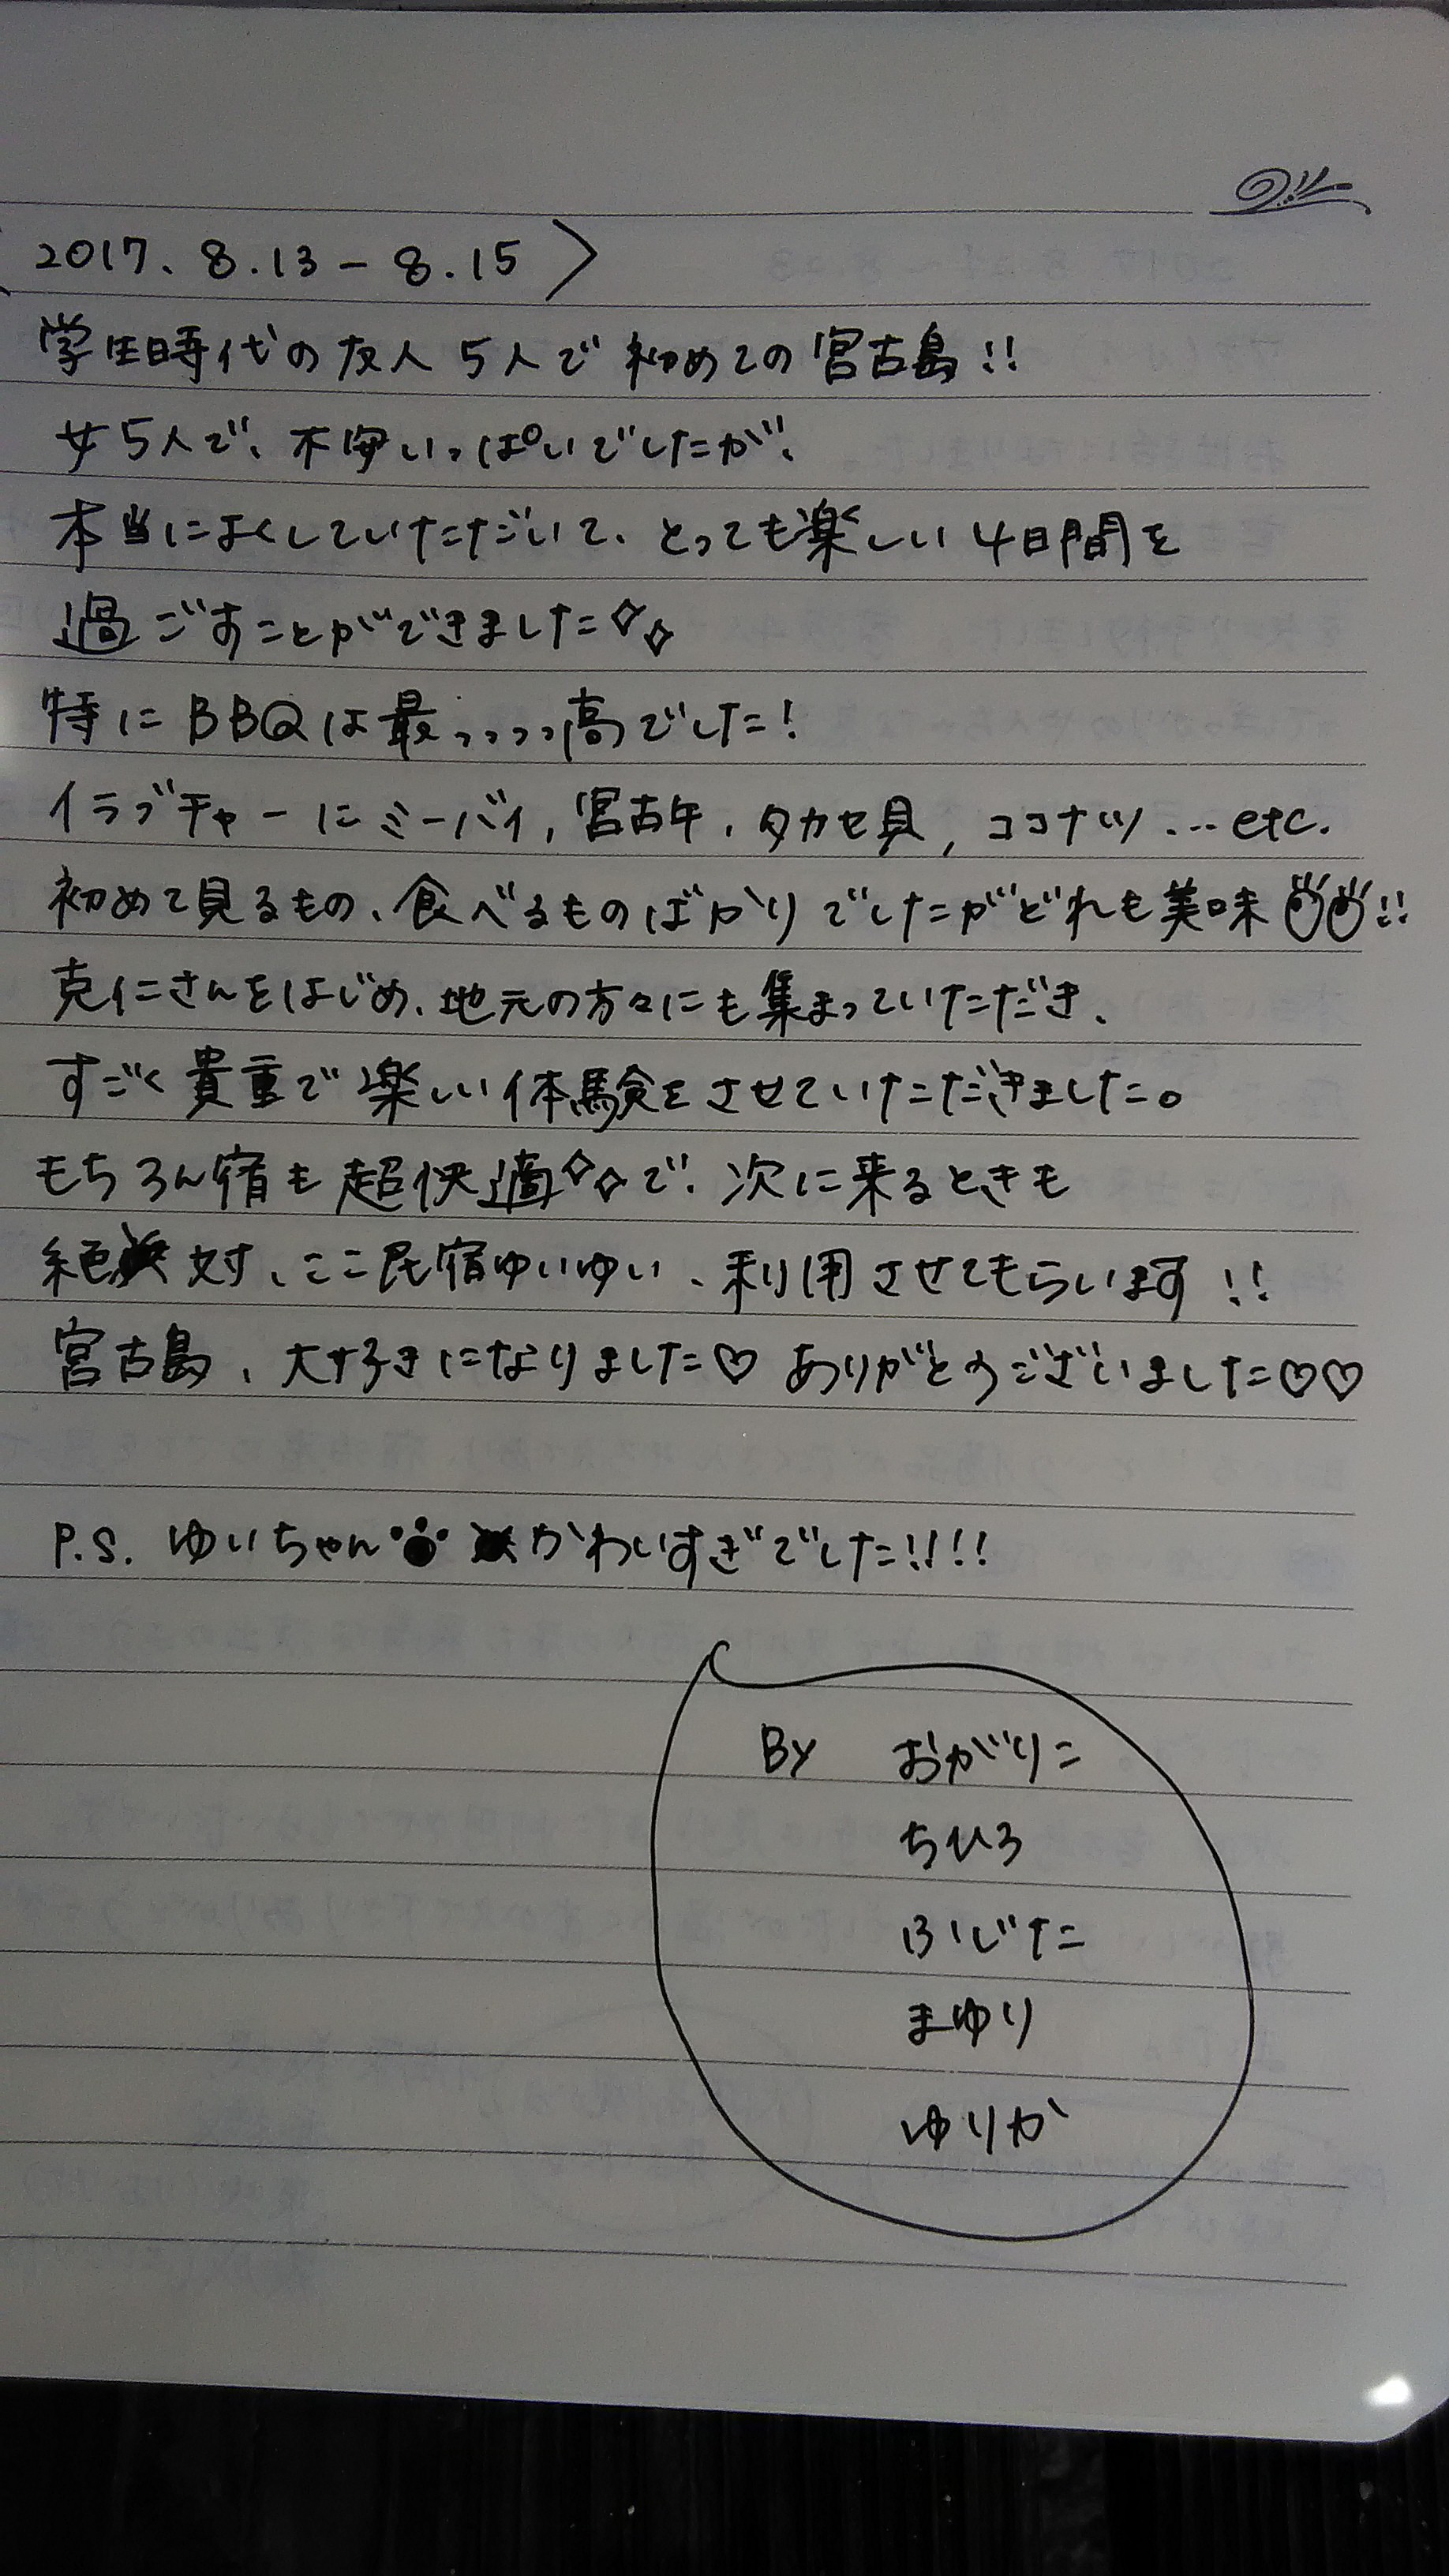 〈2017. 8.13 - 8.15〉
学生時代の友人5人で初めての宮古島!!
女5人で、不安いっぱいでしたが、
本当によくしていただいて、とっても楽しい4日間を
過ごすことができました✧✧
特にBBQは最っっっっ高でした!
イラブチャーにミーバイ, 宮古牛, タカセ貝, ココナッツ...etc.
初めて見るもの、食べるものばかりでしたがどれも美味!!
克仁さんをはじめ、地元の方々にも集まっていただき、
すごく貴重で楽しい体験をさせていただきました。
もちろん宿も超快適✧✧で、次に来るときも
絶対、ここ民宿ゆいゆい、利用させてもらいます!!
宮古島、大好きになりました♡ ありがとうございました♡♡
P.S. ゆいちゃん かわいすぎでした!!!!
By おがりこ
ちひろ
ふじた
まゆり
ゆりか